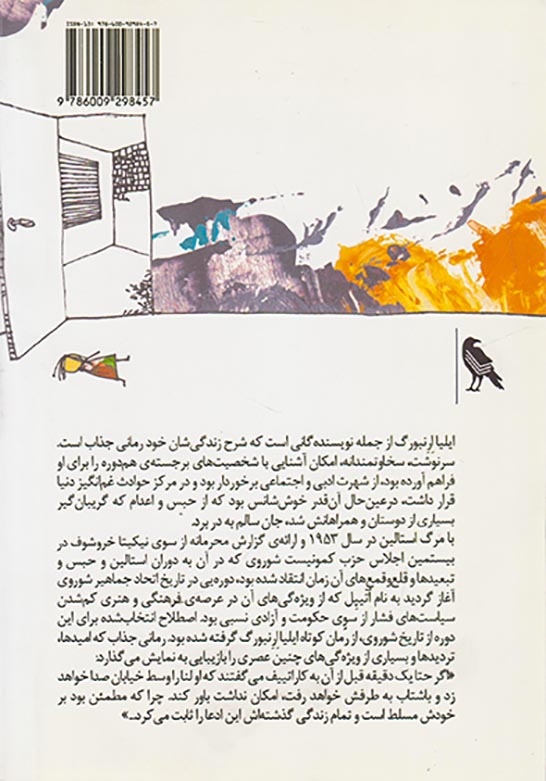 ISBN-13: 978-600-92984-5-7
9 786009 298457
ایلیا اِرنبورگ از جمله نویسنده‌گانی است که شرح زندگی‌شان خود رمانی جذاب است.
سرنوشت، سخاوتمندانه، امکان آشنایی با شخصیت‌های برجسته‌ی هم‌دوره را برای او
فراهم آورده بود، از شهرت ادبی و اجتماعی برخوردار بود و در مرکز حوادث غم‌انگیز دنیا
قرار داشت، درعین‌حال آن‌قدر خوش‌شانس بود که از حبس و اعدام که گریبان‌گیر
بسیاری از دوستان و همراهانش شد، جان سالم به در برد.
با مرگ استالین در سال ۱۹۵۳ و ارائه‌ی گزارش محرمانه از سوی نیکیتا خروشوف در
بیستمین اجلاس حزب کمونیست شوروی که در آن به دوران استالین و حبس و
تبعیدها و قلع‌وقمع‌های آن زمان انتقاد شده بود، دوره‌یی در تاریخ اتحاد جماهیر شوروی
آغاز گردید به نام آتیپل که از ویژه‌گی‌های آن در عرصه‌ی فرهنگی و هنری کم‌شدن
سیاست‌های فشار از سوی حکومت و آزادی نسبی بود. اصطلاح انتخاب‌شده برای این
دوره از تاریخ شوروی، از رمان کوتاه ایلیا اِرنبورگ گرفته شده بود. رمانی جذاب که امیدها،
تردیدها و بسیاری از ویژه‌گی‌های چنین عصری را بازیبایی به نمایش می‌گذارد:
«اگر حتا یک دقیقه قبل از آن به کاراتییف می‌گفتند که او لنا را وسط خیابان صدا خواهد
زد و باشتاب به طرفش خواهد رفت، امکان نداشت باور کند. چرا که مطمئن بود بر
خودش مسلط است و تمام زندگی گذشته‌اش این ادعا را ثابت می‌کرد...»